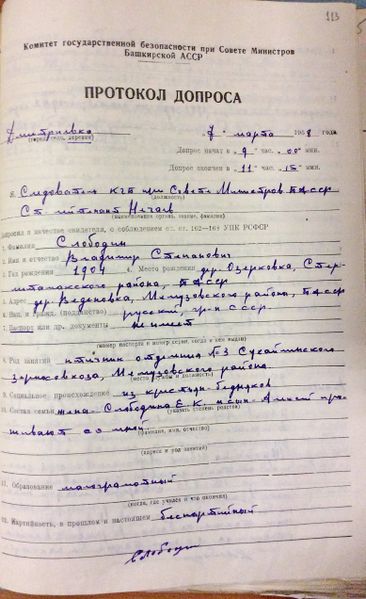 113
Комитет государственной безопасности при Совете Министров
Башкирской АССР
ПРОТОКОЛ ДОПРОСА
Дмитриевка „7" марта 1958 года
(город, село, деревня)
Допрос начат в „9" час. „00" мин.
Допрос окончен в „11" час. „15" мин.
Я, Следователь КГБ при Совете Министров БАССР
(должность)
Ст. лейтенант Нечаев
(наименование органа, звание, фамилия)
допросил в качестве свидетеля, с соблюдением ст. ст. 162—168 УПК РСФСР
1. Фамилия Слободин
2. Имя и отчество Владимир Степанович
3. Год рождения 1904 4. Место рождения дер. Озерковка, Стер-
литамакского района, БАССР
5. Адрес дер. Веденовка, Мелеузовского района, БАССР
6. Нац. и гражд. (подданство) русский, гр-н СССР
7. Паспорт или др. документы не имеет
(номер паспорта и номер серии, когда и кем выдан)
8. Род занятий птичник отделения №3
зерносовхоза, Мелеузовского района
(место работы и должность)
9. Социальное происхождение из крестьян-бедняков
10. Состав семьи жена - Слободина Е. К. и сын - Алексей про-
(указать степень родства)
живают со мной
(фамилия, имя, отчество)
(адреса и род занятий)
11. Образование малограмотный
(когда, где учился и что окончил)
12. Партийность, в прошлом и настоящем беспартийный
Слободин